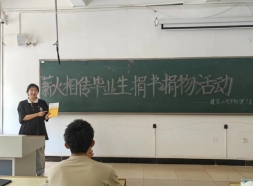 薪火相传毕业生捐书捐物活动